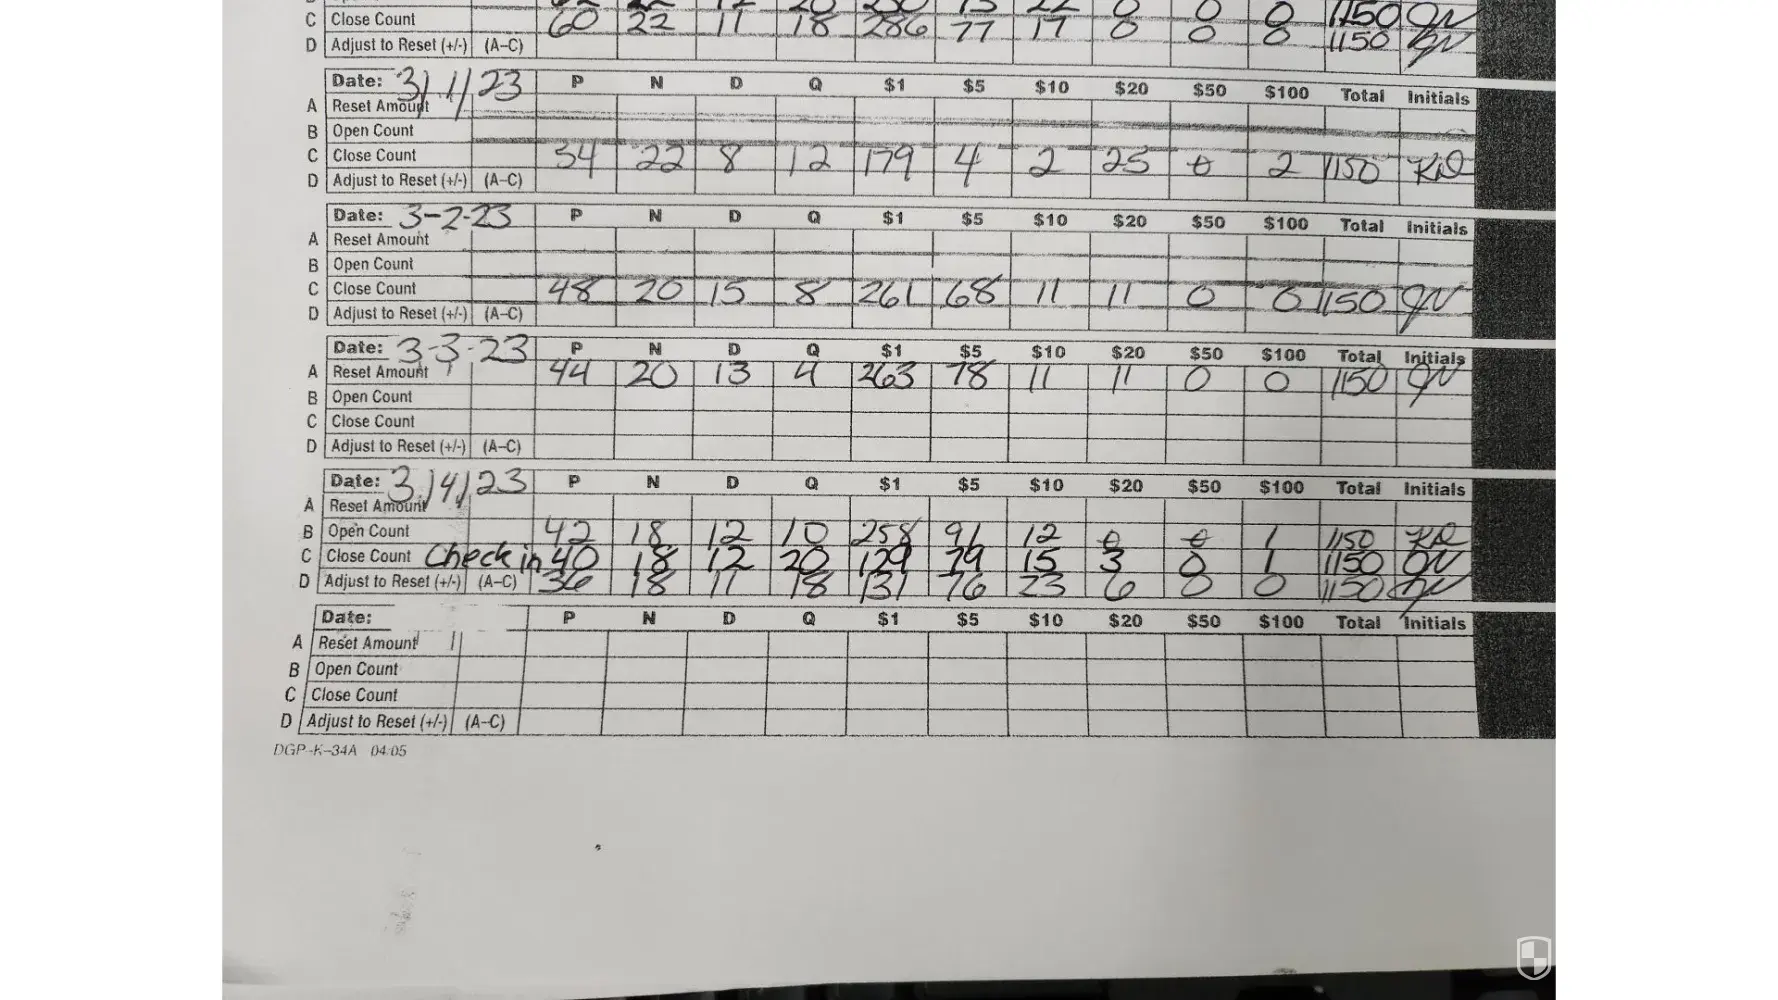 C Close Count 60 22 11 18 286 77 17 0 0 0 1150 JW
D Adjust to Reset (+/-) (A–C) 1150
Date: 3/1/23 P N D Q $1 $5 $10 $20 $50 $100 Total Initials
A Reset Amount
B Open Count
C Close Count 54 22 8 12 179 4 2 25 0 2 1150 KD
D Adjust to Reset (+/-) (A–C)
Date: 3-2-23 P N D Q $1 $5 $10 $20 $50 $100 Total Initials
A Reset Amount
B Open Count
C Close Count 48 20 15 8 261 68 11 11 0 0 1150 JW
D Adjust to Reset (+/-) (A–C)
Date: 3-3-23 P N D Q $1 $5 $10 $20 $50 $100 Total Initials
A Reset Amount 44 20 13 4 263 78 11 11 0 0 1150 JW
B Open Count
C Close Count
D Adjust to Reset (+/-) (A–C)
Date: 3/4/23 P N D Q $1 $5 $10 $20 $50 $100 Total Initials
A Reset Amount
B Open Count 42 18 12 10 258 91 12 0 0 1 1150 KD
C Close Count Check in 40 18 12 20 129 79 15 3 0 1 1150 JW
D Adjust to Reset (+/-) (A–C) 36 18 11 18 131 76 23 6 0 0 1150 JW
Date: P N D Q $1 $5 $10 $20 $50 $100 Total Initials
A Reset Amount
B Open Count
C Close Count
D Adjust to Reset (+/-) (A–C)
DGP-K-34A 04/05